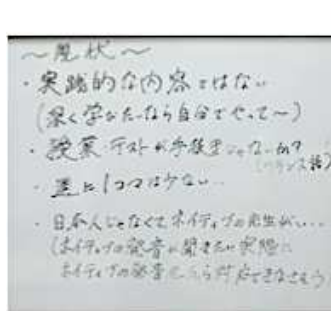 ～現状～
・実践的な内容ではない
(深く学びたいなら自分でやって～)
・授業 テストが手抜きじゃないか?
(フランス語)
・週に1コマは少ない…
・日本人じゃなくてネイティブの先生がいい…
(ネイティブの発音が聞きたい 実際に
ネイティブの発音だったら対応できなさそう)